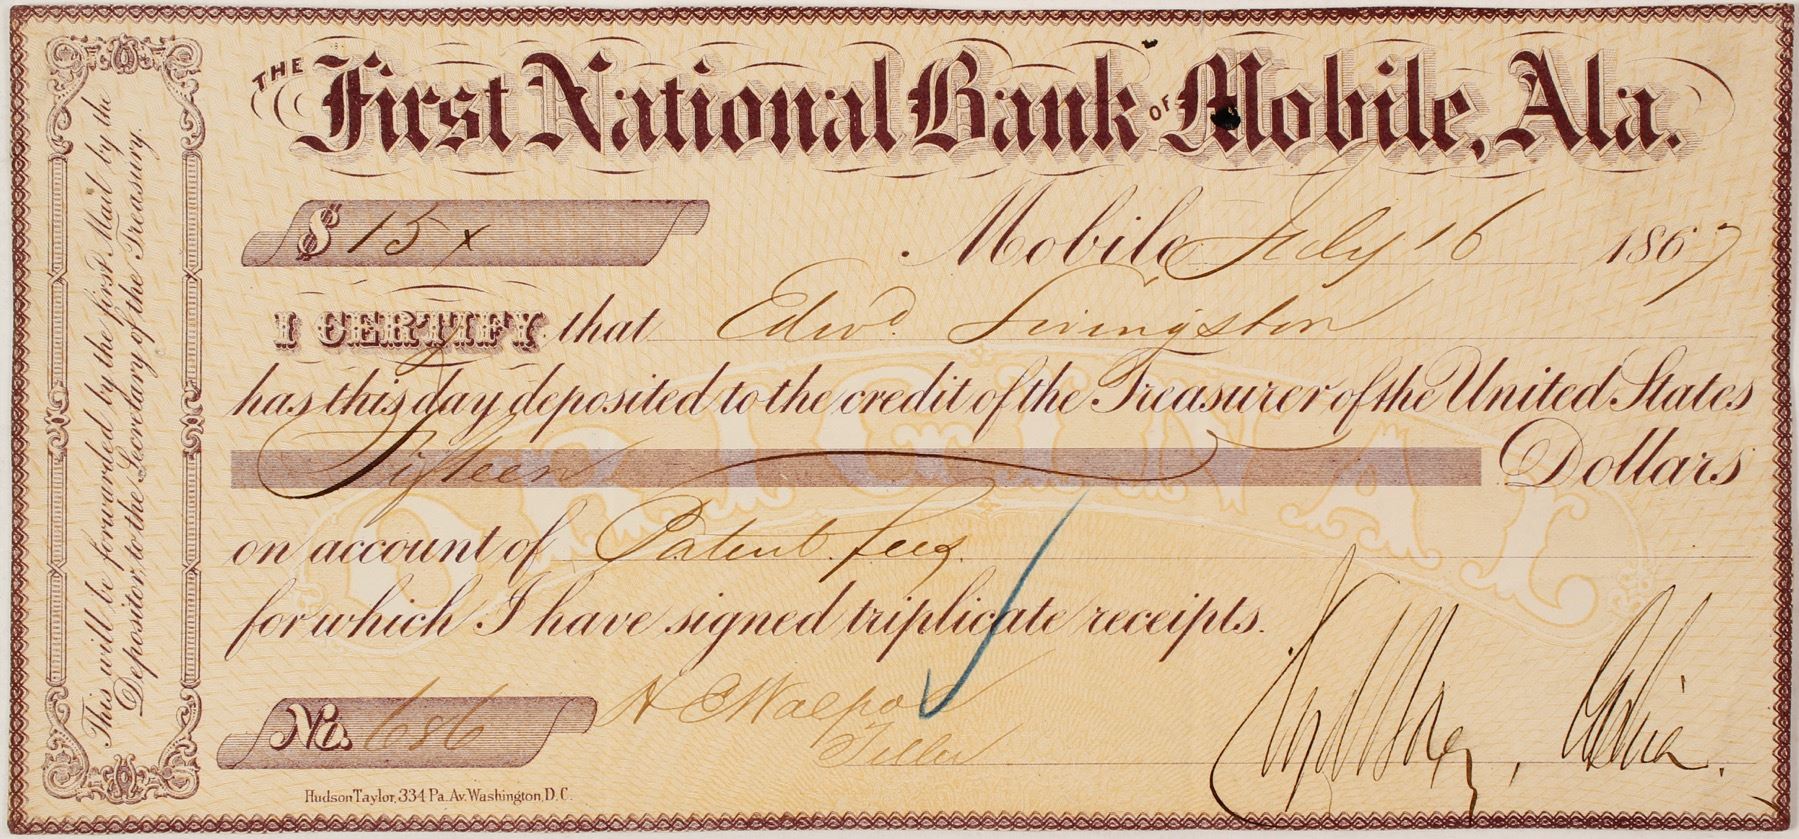 THE First National Bank OF Mobile, Ala.
$ 15 x
Mobile July 16 1867
I CERTIFY that Edwd. Livingston
has this day deposited to the credit of the Treasurer of the United States
Fifteen Dollars
ORIGINAL
on account of Patent fees
for which I have signed triplicate receipts.
No. 686
H C Walpo
Teller
Cashier.
Hudson Taylor, 334 Pa. Av. Washington, D. C.
This will be forwarded by the first Mail by the
Depositor, to the Secretary of the Treasury.